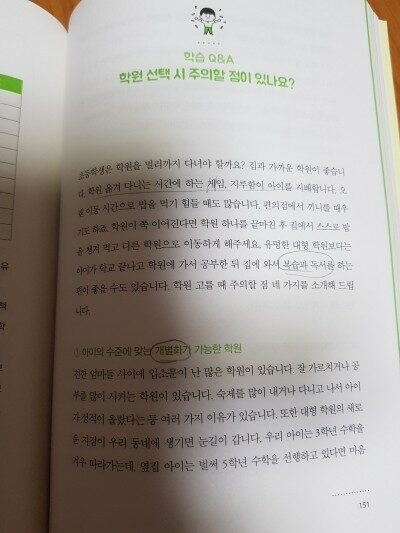 학습 Q&A
학원 선택 시 주의할 점이 있나요?
초등학생은 학원을 멀리까지 다녀야 할까요? 집과 가까운 학원이 좋습니
다. 학원 옮겨 다니는 시간에 하는 게임, 지루함이 아이를 지배합니다. 오
랜 이동 시간으로 밥을 먹기 힘들 때도 많습니다. 편의점에서 끼니를 때우
기도 하죠. 학원이 쭉 이어진다면 학원 하나를 끝마친 후 집에서 스스로 밥
을 챙겨 먹고 다른 학원으로 이동하게 해주세요. 유명한 대형 학원보다는
아이가 학교 끝나고 학원에 가서 공부한 뒤 집에 와서 복습과 독서를 하는
편이 좋을 수도 있습니다. 학원 고를 때 주의할 점 네 가지를 소개해 드립
니다.
① 아이의 수준에 맞는 개별화가 가능한 학원
친한 엄마들 사이에 입소문이 난 많은 학원이 있습니다. 잘 가르치거나 공
부를 많이 시키는 학원이 있습니다. 숙제를 많이 내거나 다니고 나서 아이
가 성적이 올랐다는 등 여러 가지 이유가 있습니다. 또한 대형 학원의 새로
운 지점이 우리 동네에 생기면 눈길이 갑니다. 우리 아이는 3학년 수학을
겨우 따라가는데, 옆집 아이는 벌써 5학년 수학을 선행하고 있다면 마음
151
유
책
학